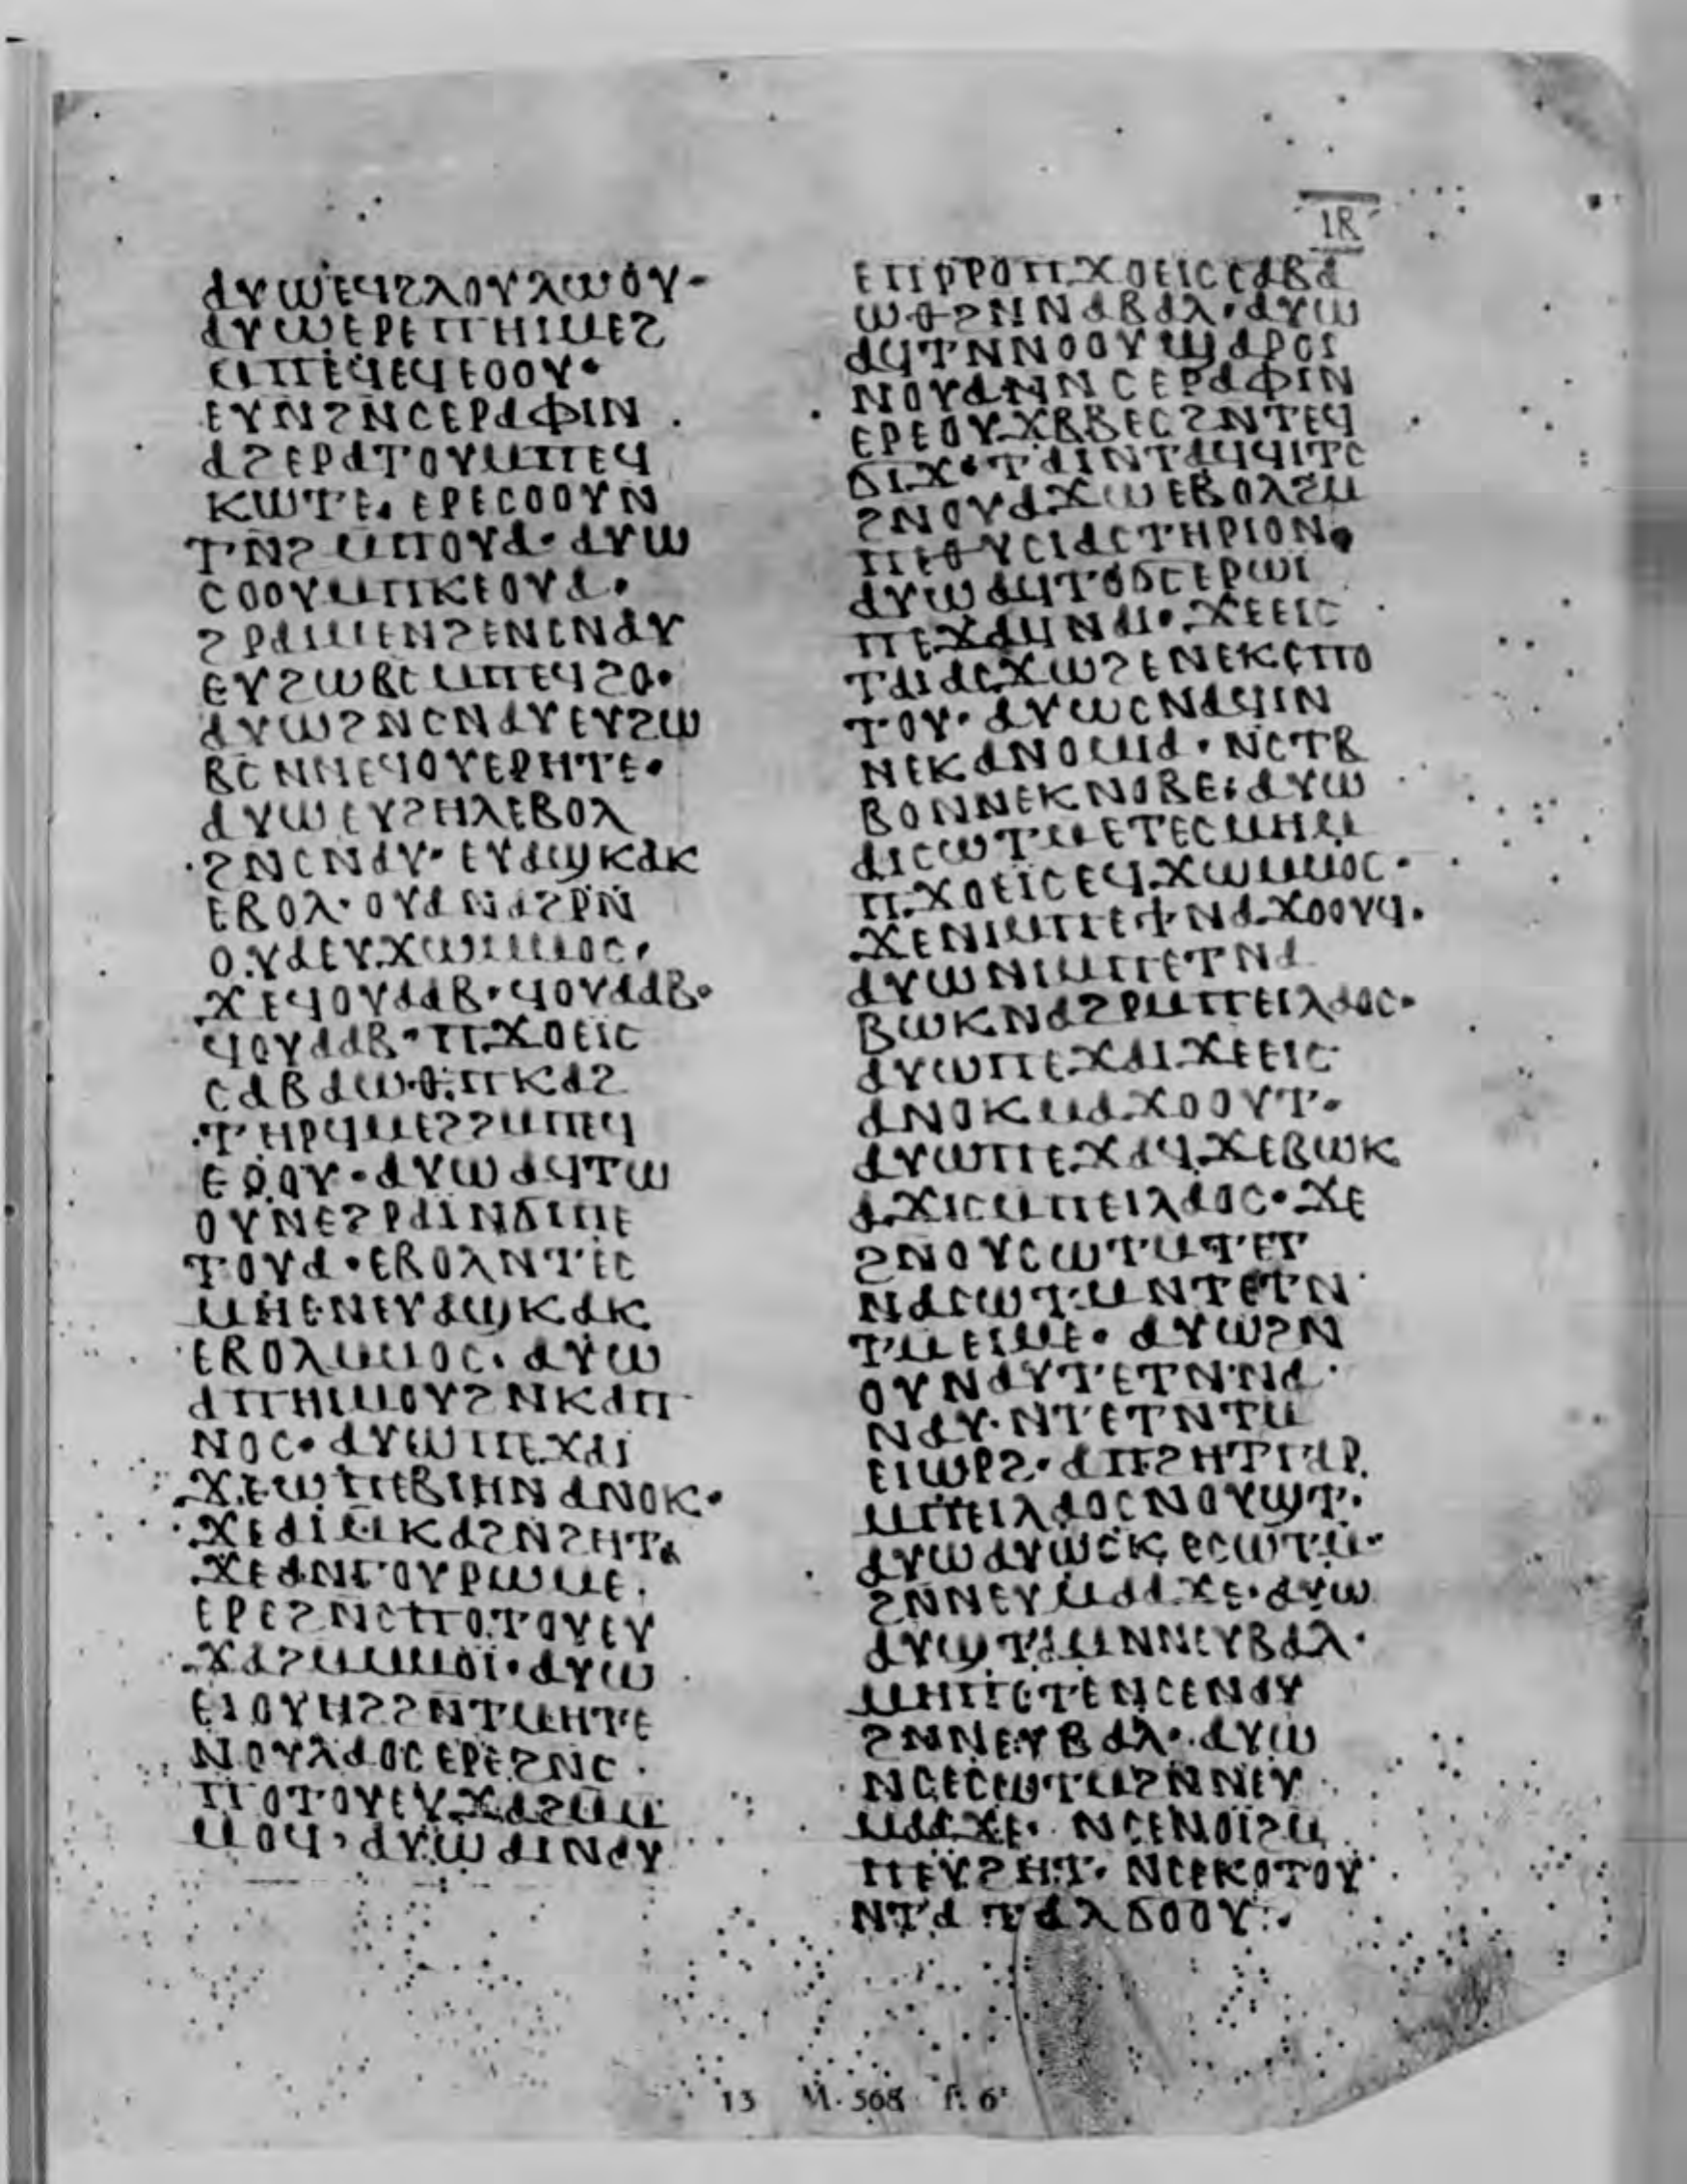 ⲓⲃ
ⲁⲩⲱⲉϥϩⲗⲟⲩⲗⲱⲟⲩ-
ⲁⲩⲱⲉⲣⲉⲡⲏⲓⲙⲉϩ
ⲉⲙⲡⲉϥⲉⲟⲟⲩ·
ⲉⲩⲛϩⲛⲥⲉⲣⲁⲫⲓⲛ
ⲁϩⲉⲣⲁⲧⲟⲩⲙⲡⲉϥ
ⲕⲱⲧⲉ· ⲉⲣⲉⲥⲟⲟⲩⲛ
ⲧⲛϩ ⲙⲡⲟⲩⲁ· ⲁⲩⲱ
ⲥⲟⲟⲩⲙⲡⲕⲉⲟⲩⲁ·
ϩⲣⲁⲓⲙⲉⲛϩⲉⲛⲥⲛⲁⲩ
ⲉⲩϩⲱⲃⲥⲙⲡⲉϥϩⲟ·
ⲁⲩⲱϩⲛⲥⲛⲁⲩⲉⲩϩⲱ
ⲃⲥⲛⲛⲉϥⲟⲩⲉⲣⲏⲧⲉ·
ⲁⲩⲱⲉⲩϩⲏⲗⲉⲃⲟⲗ
ϩⲛⲥⲛⲁⲩ· ⲉⲩⲁϣⲕⲁⲕ
ⲉⲃⲟⲗ· ⲟⲩⲁⲛⲁϩⲣⲛ
ⲟⲩⲁⲉⲩϫⲱⲙⲙⲟⲥ·
ϫⲉϥⲟⲩⲁⲁⲃ·ϥⲟⲩⲁⲁⲃ·
ϥⲟⲩⲁⲁⲃ·ⲡϫⲟⲉⲓⲥ
ⲥⲁⲃⲁⲱⲑ·ⲡⲕⲁϩ
ⲧⲏⲣϥⲙⲉϩϩⲙⲡⲉϥ
ⲉⲟⲟⲩ·ⲁⲩⲱⲁϥⲧⲱ
ⲟⲩⲛⲉϩⲣⲁⲓⲛϭⲓⲡⲉ
ⲧⲟⲩⲁ·ⲉⲃⲟⲗⲛⲧⲉⲥ
ⲙⲏⲉⲛⲉⲩⲁϣⲕⲁⲕ
ⲉⲃⲟⲗⲙⲙⲟⲥ· ⲁⲩⲱ
ⲁⲡⲏⲓⲙⲟⲩϩⲛⲕⲁⲡ
ⲛⲟⲥ· ⲁⲩⲱⲡⲉϫⲁⲓ
ϫⲉⲱⲡⲉⲃⲓⲏⲛ ⲁⲛⲟⲕ·
ϫⲉⲁⲓⲙⲕⲁϩⲛϩⲏⲧ·
ϫⲉⲁⲛⲅⲟⲩⲣⲱⲙⲉ·
ⲉⲣⲉϩⲛⲥⲡⲟⲧⲟⲩⲉⲩ
ϫⲁϩⲙⲙⲙⲟⲓ·ⲁⲩⲱ
ⲉⲓⲟⲩⲏϩϩⲛⲧⲙⲏⲧⲉ
ⲛⲟⲩⲗⲁⲟⲥⲉⲣⲉϩⲛⲥ
ⲡⲟⲧⲟⲩⲉⲩϫⲁϩⲙⲙ
ⲙⲟϥ·ⲁⲩⲱⲁⲓⲛⲁⲩ
ⲉⲡⲣⲣⲟⲡϫⲟⲉⲓⲥⲥⲁⲃⲁ
ⲱⲑϩⲛⲛⲁⲃⲁⲗ·ⲁⲩⲱ
ⲁϥⲧⲛⲛⲟⲟⲩϣⲁⲣⲟⲓ
ⲛⲟⲩⲁⲛⲛⲥⲉⲣⲁⲫⲓⲛ
ⲉⲣⲉⲟⲩϫⲃⲃⲉⲥϩⲛⲧⲉϥ
ϭⲓϫ·ⲧⲁⲓⲛⲧⲁϥϥⲓⲧⲥ
ϩⲛⲟⲩⲁϫⲱⲉⲃⲟⲗϩⲙ
ⲡⲉⲑⲩⲥⲓⲁⲥⲧⲏⲣⲓⲟⲛ·
ⲁⲩⲱⲁϥⲧⲟϭⲥⲉⲣⲱⲓ
ⲡⲉϫⲁϥⲛⲁⲓ·ϫⲉⲉⲓⲥ
ⲧⲁⲓⲁⲥϫⲱϩⲉⲛⲉⲕⲥⲡⲟ
ⲧⲟⲩ·ⲁⲩⲱⲥⲛⲁϥⲓⲛ
ⲛⲉⲕⲁⲛⲟⲙⲓⲁ·ⲛⲥⲧⲃ
ⲃⲟⲛⲛⲉⲕⲛⲟⲃⲉ·ⲁⲩⲱ
ⲁⲓⲥⲱⲧⲙⲉⲧⲉⲥⲙⲏⲙ
ⲡϫⲟⲉⲓⲥⲉϥϫⲱⲙⲙⲟⲥ·
ϫⲉⲛⲓⲙⲡⲉϯⲛⲁϫⲟⲟⲩϥ·
ⲁⲩⲱⲛⲓⲙⲡⲉⲧⲛⲁ
ⲃⲱⲕⲛⲁϩⲣⲙⲡⲉⲓⲗⲁⲟⲥ·
ⲁⲩⲱⲡⲉϫⲁⲓϫⲉⲉⲓⲥ
ⲁⲛⲟⲕⲙⲁϫⲟⲟⲩⲧ·
ⲁⲩⲱⲡⲉϫⲁϥϫⲉⲃⲱⲕ
ⲁϫⲓⲥⲙⲡⲉⲓⲗⲁⲟⲥ·ϫⲉ
ϩⲛⲟⲩⲥⲱⲧⲙⲧⲉⲧ
ⲛⲁⲥⲱⲧⲙⲛⲧⲉⲧⲛ
ⲧⲙⲉⲓⲙⲉ· ⲁⲩⲱϩⲛ
ⲟⲩⲛⲁⲩⲧⲉⲧⲛⲛⲁ
ⲛⲁⲩ·ⲛⲧⲉⲧⲛⲧⲙ
ⲉⲓⲱⲣϩ·ⲁⲡϩⲏⲧⲅⲁⲣ
ⲙⲡⲉⲓⲗⲁⲟⲥⲛⲟⲩϣⲧ·
ⲁⲩⲱⲁⲩⲱⲥⲕ ⲉⲥⲱⲧⲙ·
ϩⲛⲛⲉⲩⲙⲁⲁϫⲉ·ⲁⲩⲱ
ⲁⲩϣⲧⲁⲙⲛⲛⲉⲩⲃⲁⲗ·
ⲙⲏⲡⲟⲧⲉⲛⲥⲉⲛⲁⲩ
ϩⲛⲛⲉⲩⲃⲁⲗ·ⲁⲩⲱ
ⲛⲥⲉⲥⲱⲧⲙϩⲛⲛⲉⲩ
ⲙⲁⲁϫⲉ· ⲛⲥⲉⲛⲟⲓϩⲙ
ⲡⲉⲩϩⲏⲧ· ⲛⲥⲉⲕⲟⲧⲟⲩ
ⲛⲧⲁ ⲧⲁⲗϭⲟⲟⲩ·
13 M. 568 f. 6ʳ